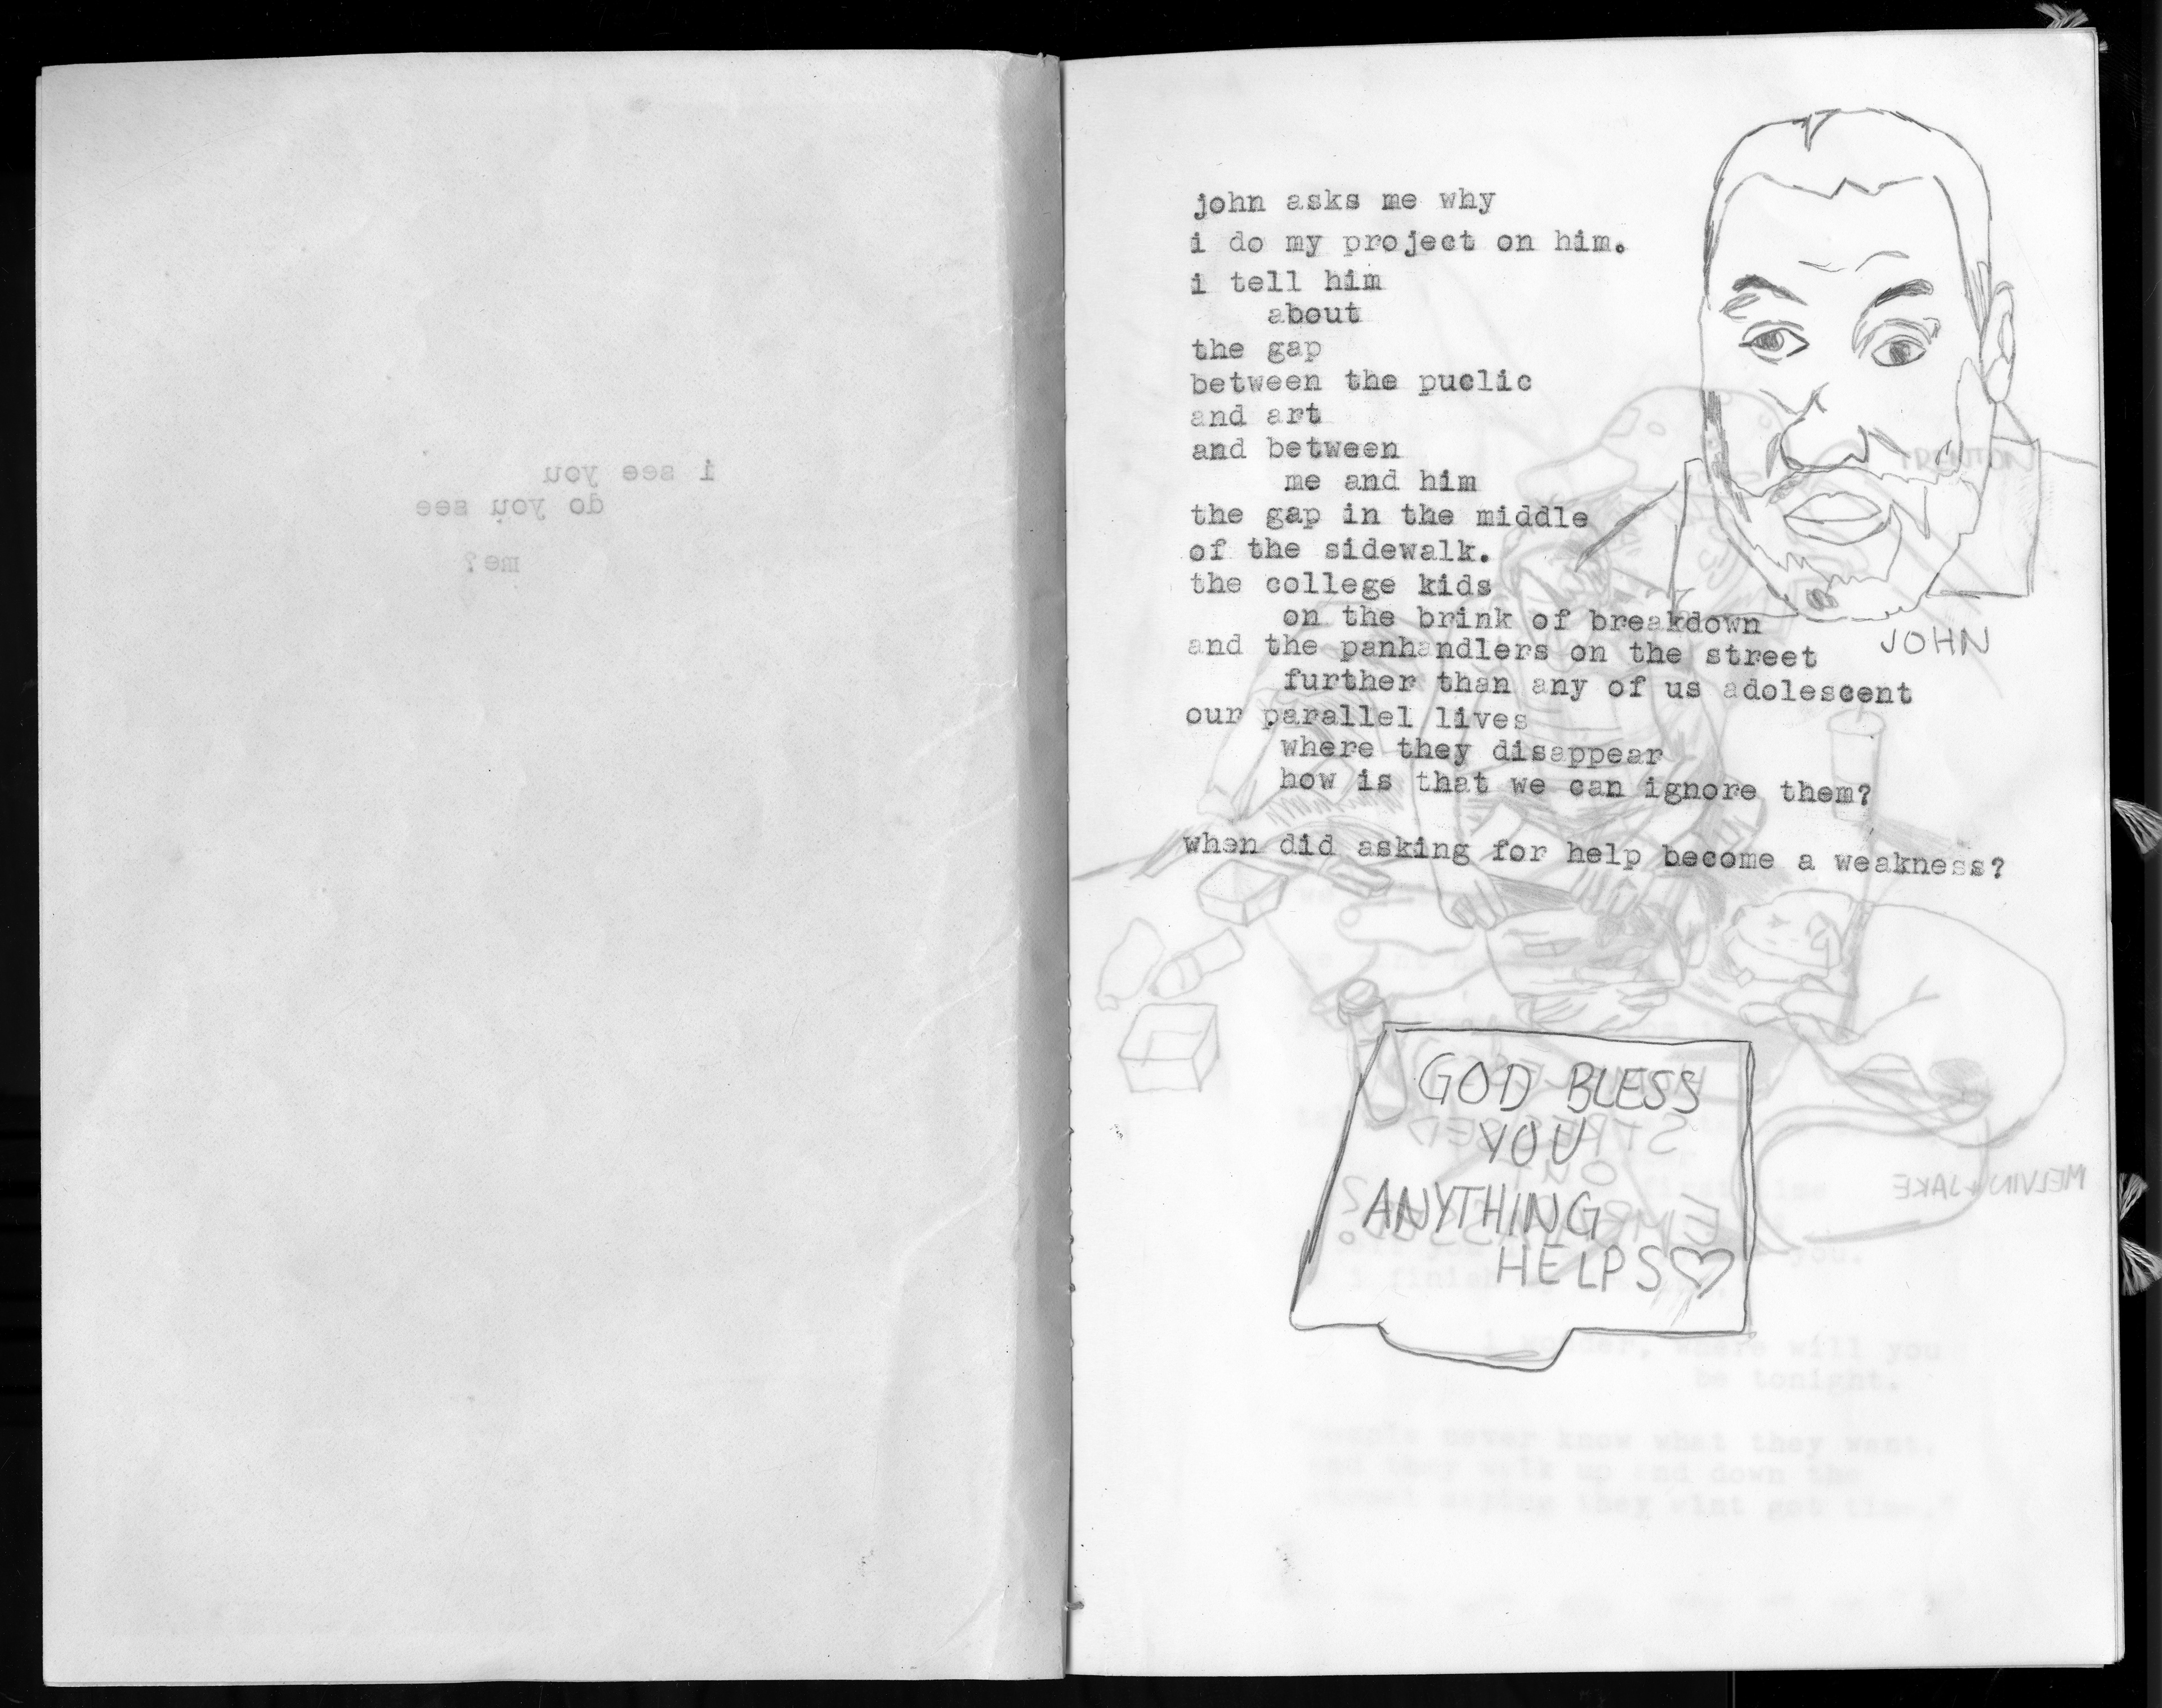 i see you
do you see
me?
john asks me why
i do my project on him.
i tell him
about
the gap
between the puclic
and art
and between
me and him
the gap in the middle
of the sidewalk.
the college kids
on the brink of breakdown
and the panhandlers on the street
further than any of us adolescent
our parallel lives
where they disappear
how is that we can ignore them?
when did asking for help become a weakness?
JOHN
GOD BLESS
YOU
ANYTHING
HELPS♡
MELVIN + JAKE
first time
you.
i finish
i wonder, where will you
be tonight.
never know what they want,
and they walk up and down the